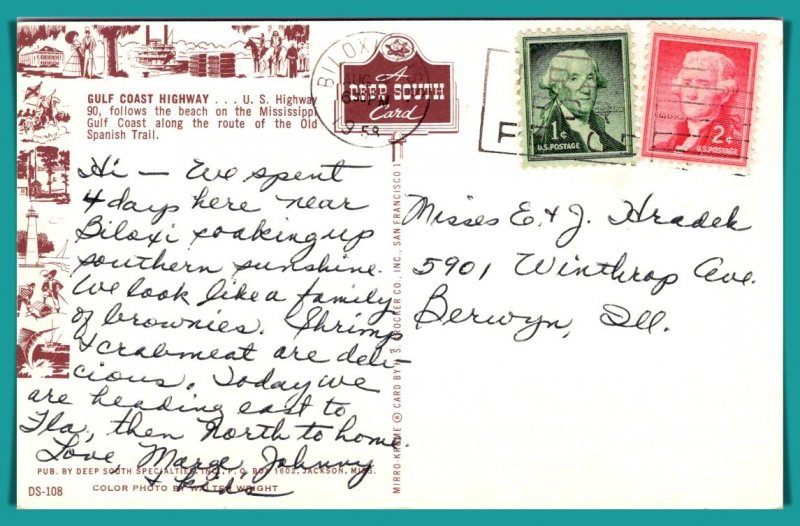 GULF COAST HIGHWAY . . . U. S. Highway
90, follows the beach on the Mississippi
Gulf Coast along the route of the Old
Spanish Trail.
A
DEEP SOUTH
Card
BILOXI
AUG
6 PM
1958
1¢
U.S. POSTAGE
2¢
U.S. POSTAGE
Hi — We spent
4 days here near
Biloxi soaking up
southern sunshine.
We look like a family
of brownies. Shrimp
& crabmeat are deli-
cious. Today we
are heading east to
Fla, then North to home.
Love Marge, Johnny
& kids
Misses E. & J. Hradek
5901 Winthrop Ave.
Berwyn, Ill.
PUB. BY DEEP SOUTH SPECIALTIES, INC., P. O. BOX 1602, JACKSON, MISS.
DS-108 COLOR PHOTO BY WALTER WRIGHT
MIRRO-KROME ® CARD BY H. S. CROCKER CO., INC., SAN FRANCISCO 1